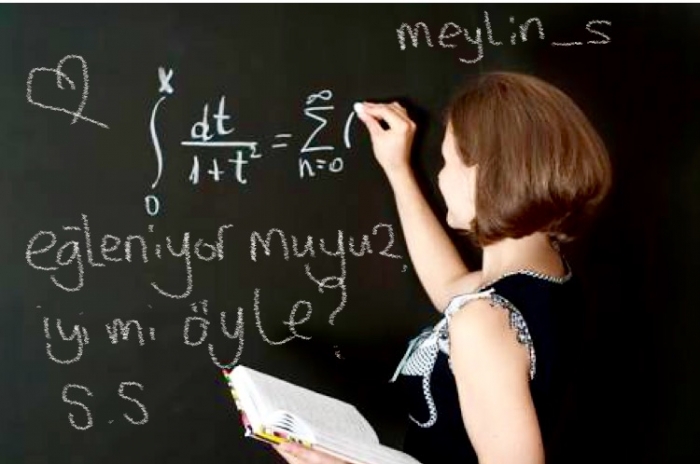 meylin_s
x
∫ dt/1+t² = ∞∑n=0 (
0
eğleniyor muyuz,
iyi mi öyle?
S.S